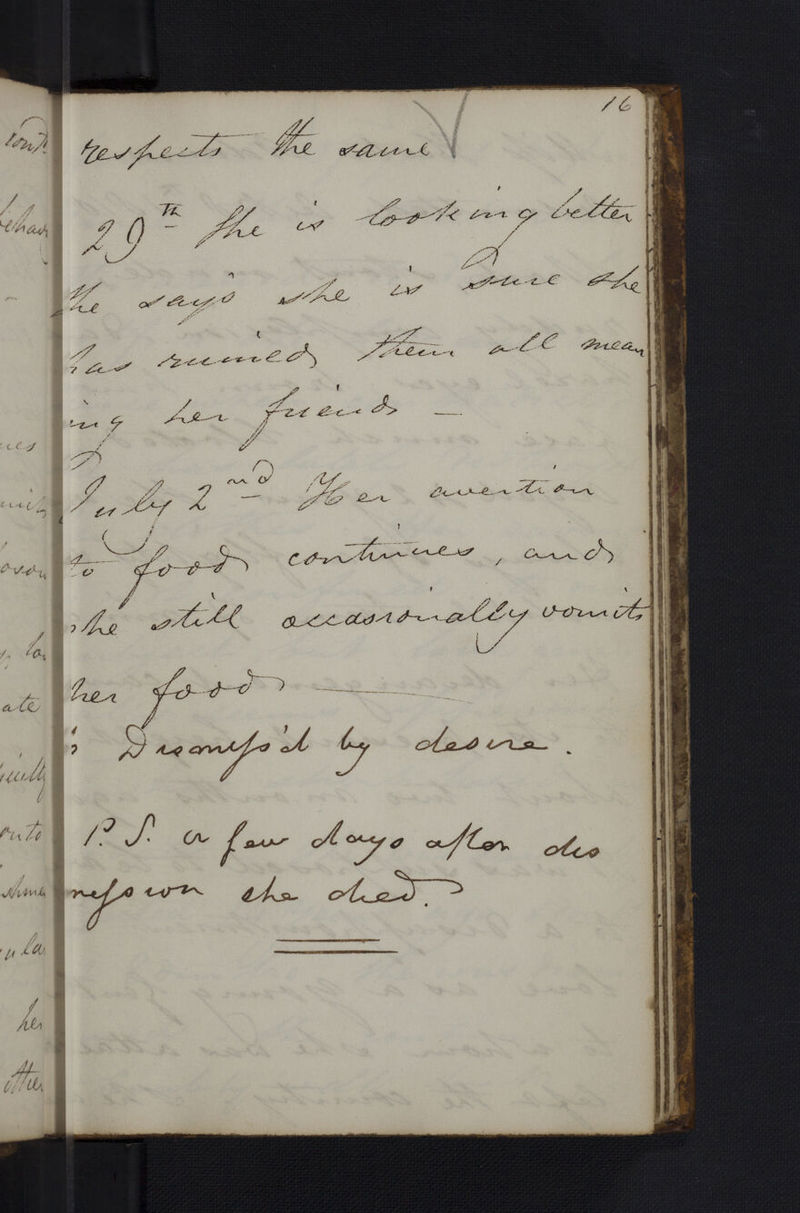 16
respects the same
29th She is looking better
She says she is sure she
has ruined them all mean
ing her friends —
July 2nd Her avertion
to food continues, and
she still occasionally vomits
her food —
Dismiss'd by desire.
P.S. a few days after dis
mission she died.